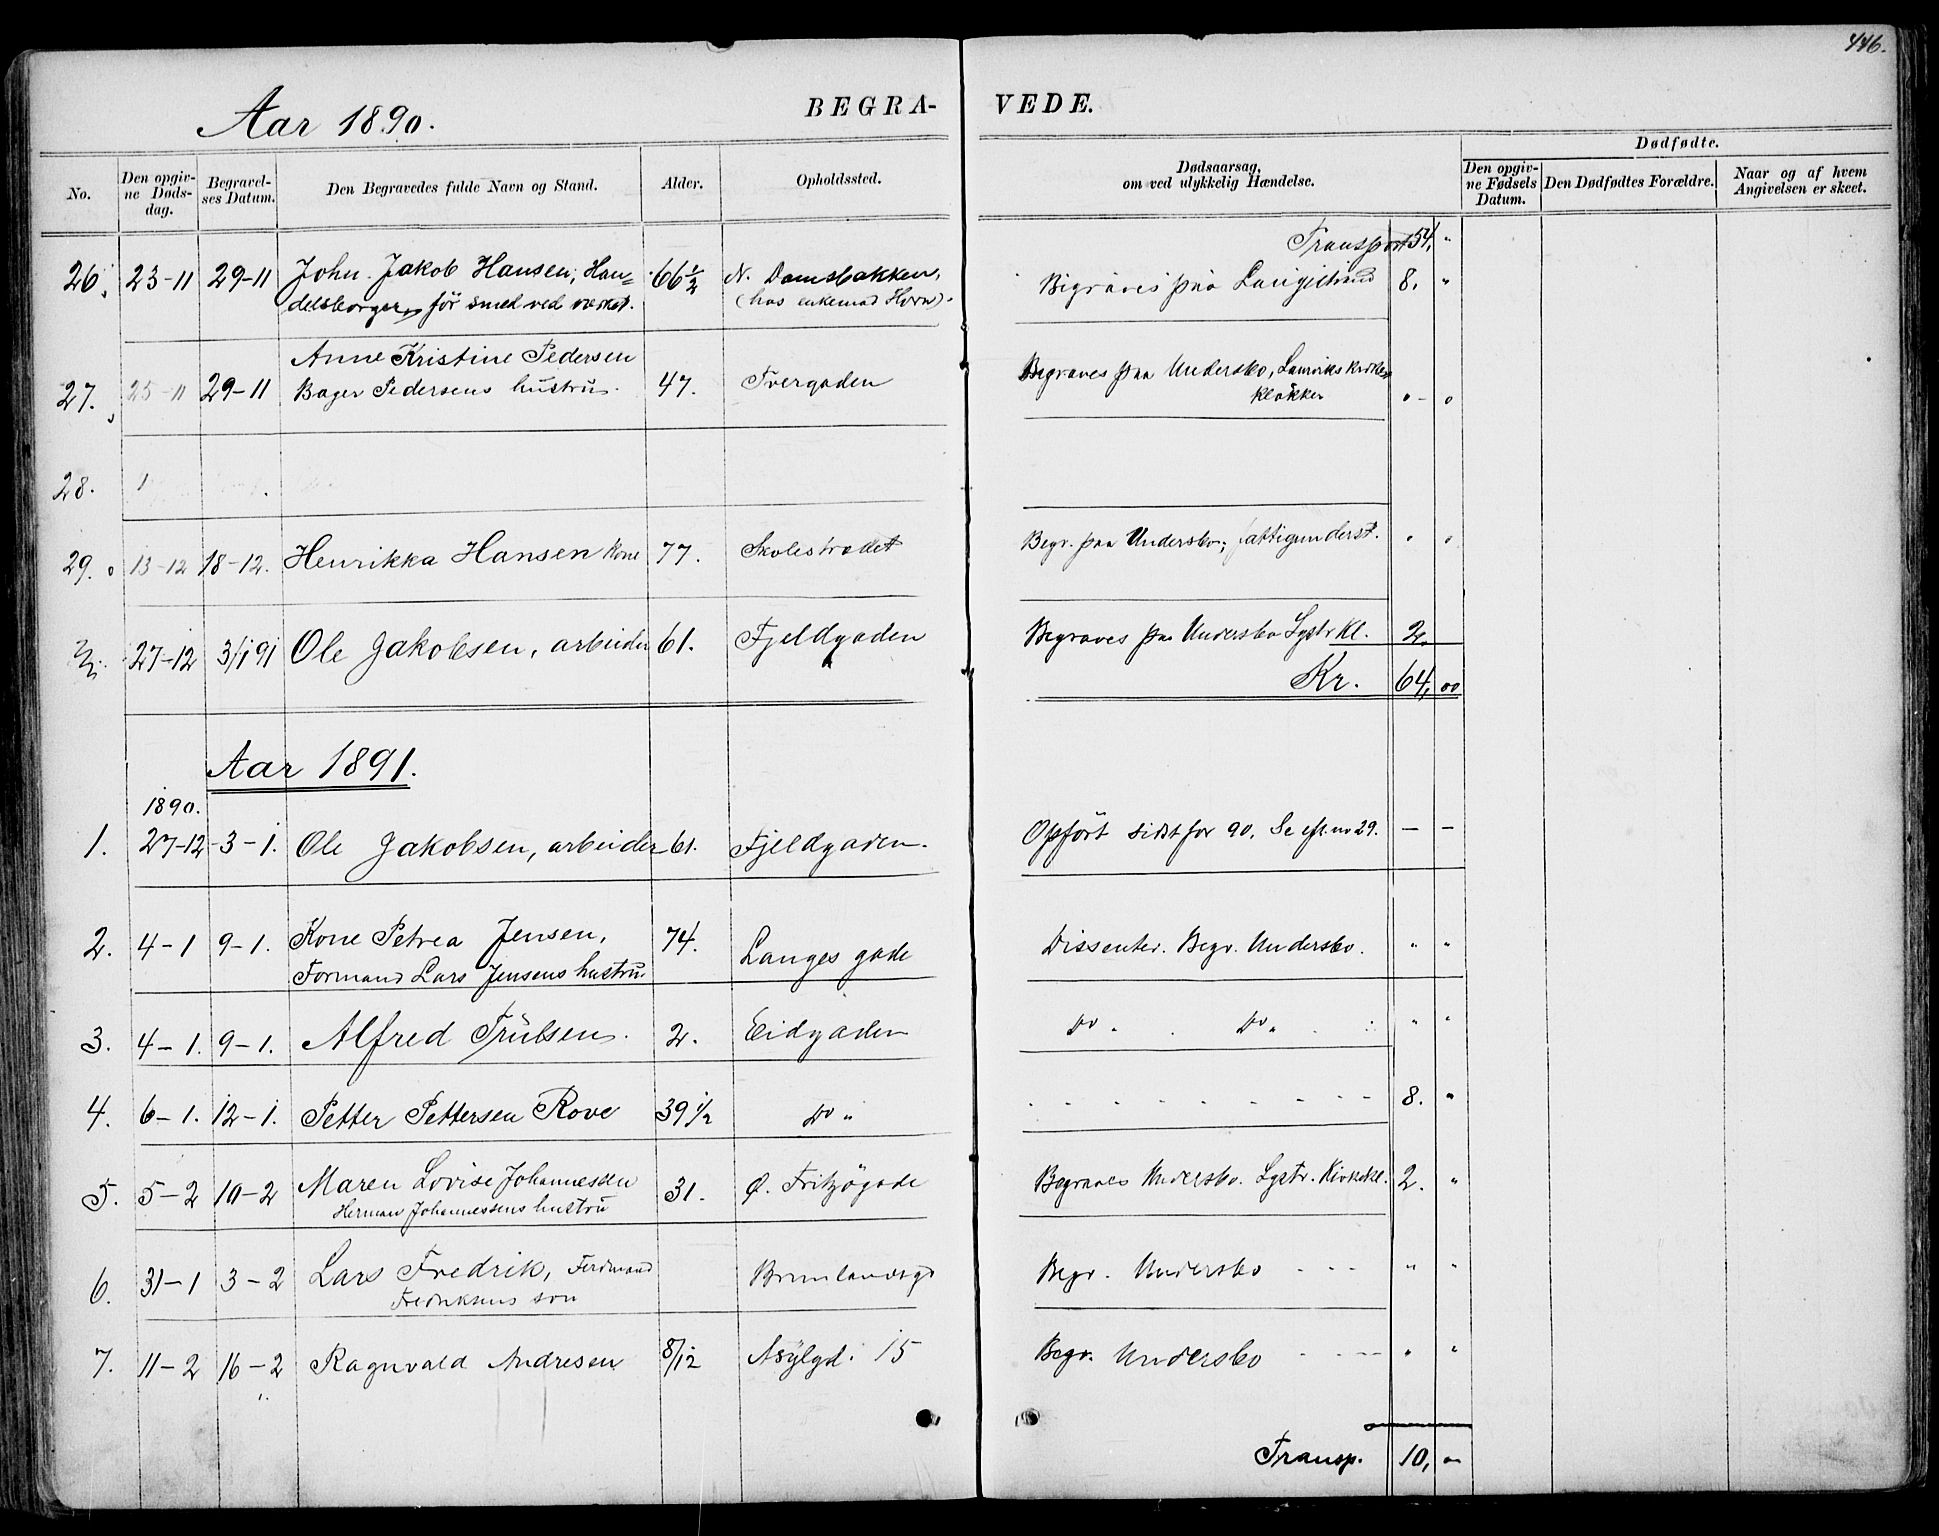 446.
Aar 1890.
BEGRA-
VEDE.
No.
Den opgiv-
ne Døds-
dag.
Begravel-
ses Datum.
Den Begravedes fulde Navn og Stand.
Alder.
Opholdssted.
Dødsaarsag,
om ved ulykkelig Hændelse.
Dødfødte.
Den opgiv-
ne Fødsels
Datum.
Den Dødfødtes Forældre.
Naar og af hvem
Angivelsen er skeet.
Transport 54, "
26. 23-11 29-11 John Jakob Hansen, Han= 66 1/2 N. Damsbakken,
delsborger, før smed ved værket. (hos enkemad Horn).
Bigraves paa Langestrand 8, "
Anne Kristine Pedersen
27. 25-11 29-11 Bager Pedersens hustru. 47. Tvergaden
Begraves paa Undersbo, Laurviks Kirkes
klokker " - "
28.
29. 13-12 18-12. Henrikka Hansen Kone 77. Skolestrædet
Begr. paa Undersbo; fattigunderst. " "
27-12 3/1 91 Ole Jakobsen, arbeider 61. Fjeldgaden
Begraves paa Undersbo Lgstr Kl. 2,
Kr. 64,00
Aar 1891.
1890.
1. 27-12 3-1. Ole Jakobsen, arbeider 61. Fjeldgaden.
Opført sidst for 90. Se eft. no 29. — —
2. 4-1 9-1. Kone Petrea Jensen, 74. Langes gade
Formand Lars Jensens hustru
Dissenter. Begr. Undersbo. " "
3. 4-1. 9-1. Alfred Trulsen. 2. Eidgaden
Do " Do " " "
4. 6-1. 12-1. Petter Pettersen Rove 39 1/2 Do "
8. "
5. 5-2 10-2 Maren Lovise Johannessen 31. Ø. Fritzøgade
Herman Johannessens hustru
Begraves Undersbo. Lgstr. Kirkekl. 2. "
6. 31-1 3-2 Lars Fredrik, Ferdinand Brunlandsgd
Fredriksens søn
Begr. Undersbo - - - " "
7. 11-2 16-2 Ragnvald Andresen 8/12 Asylgd. 15
Begr. Undersbo - - - " "
Transp. 10, "